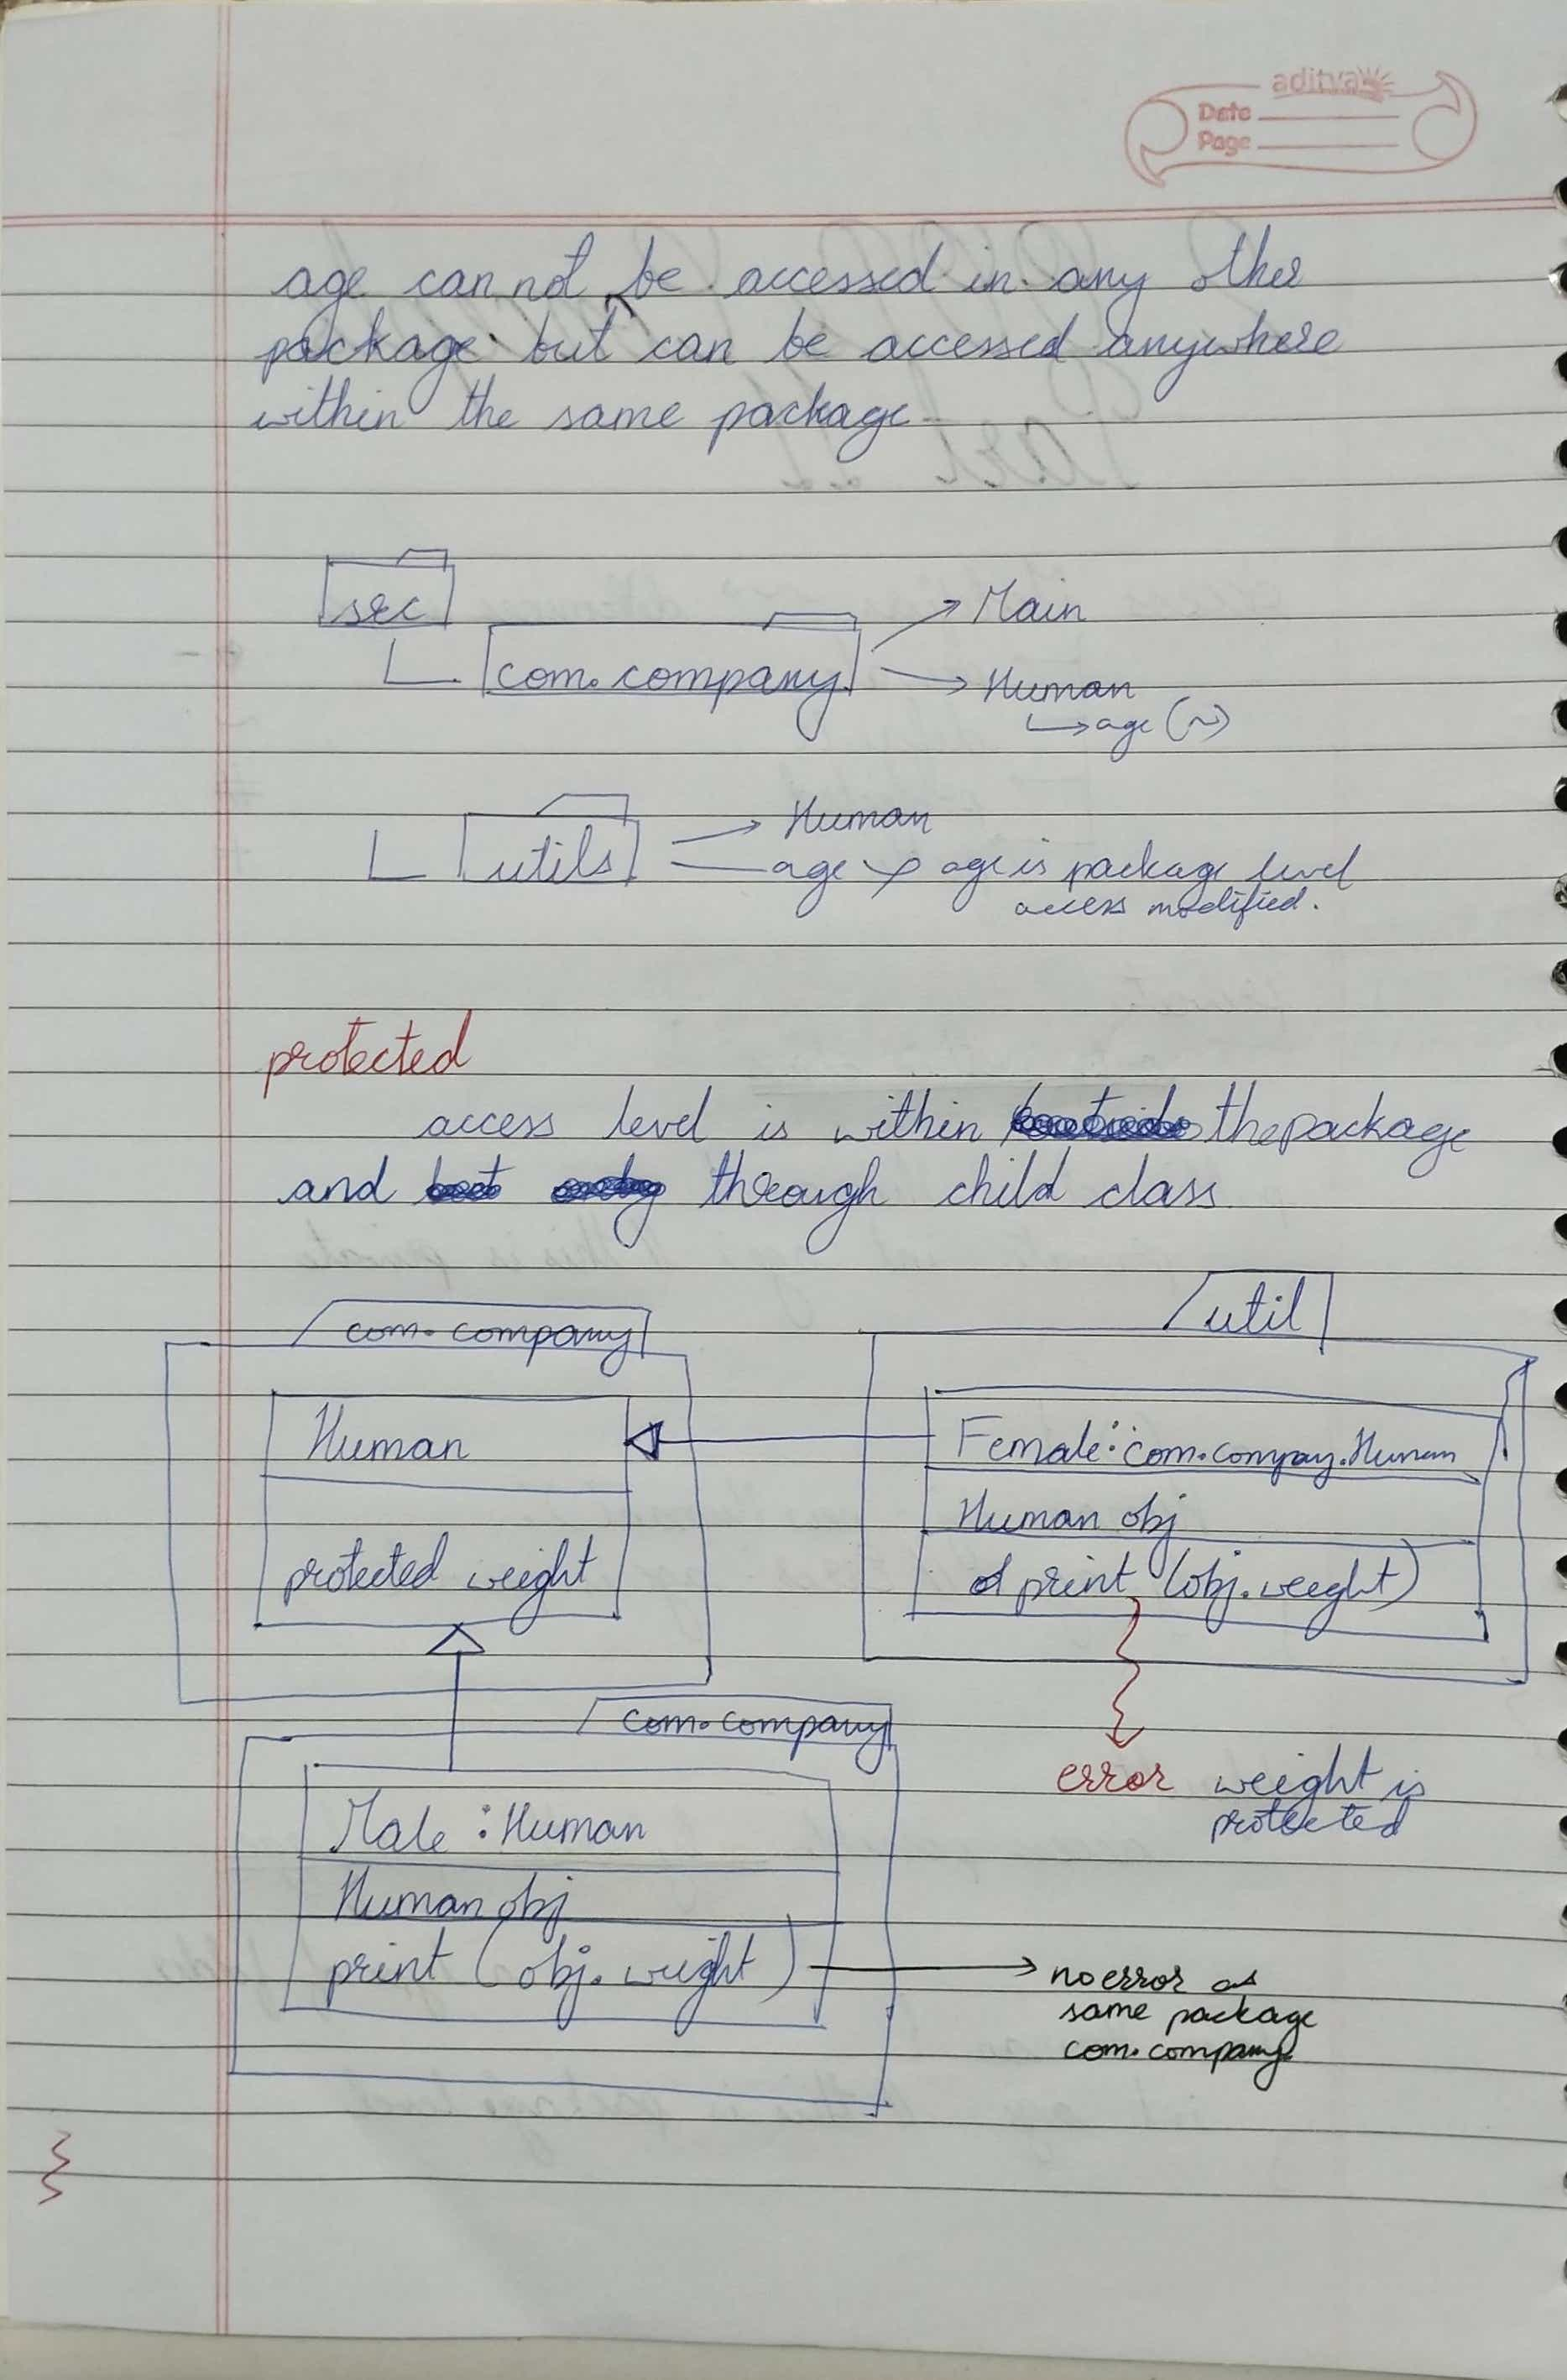 aditya
Date
Page
age can not be accessed in any other
package but can be accessed anywhere
within the same package
src
com.company
Main
Human
age (~)
utils
Human
age x age is package level
access modified.
protected
access level is within the package
and through child class
com.company
util
Human
protected weight
Female : com.compay.Human
Human obj
print (obj.weight)
com.company
Male : Human
Human obj
print (obj.weight)
error weight is
protected
no error as
same package
com.company